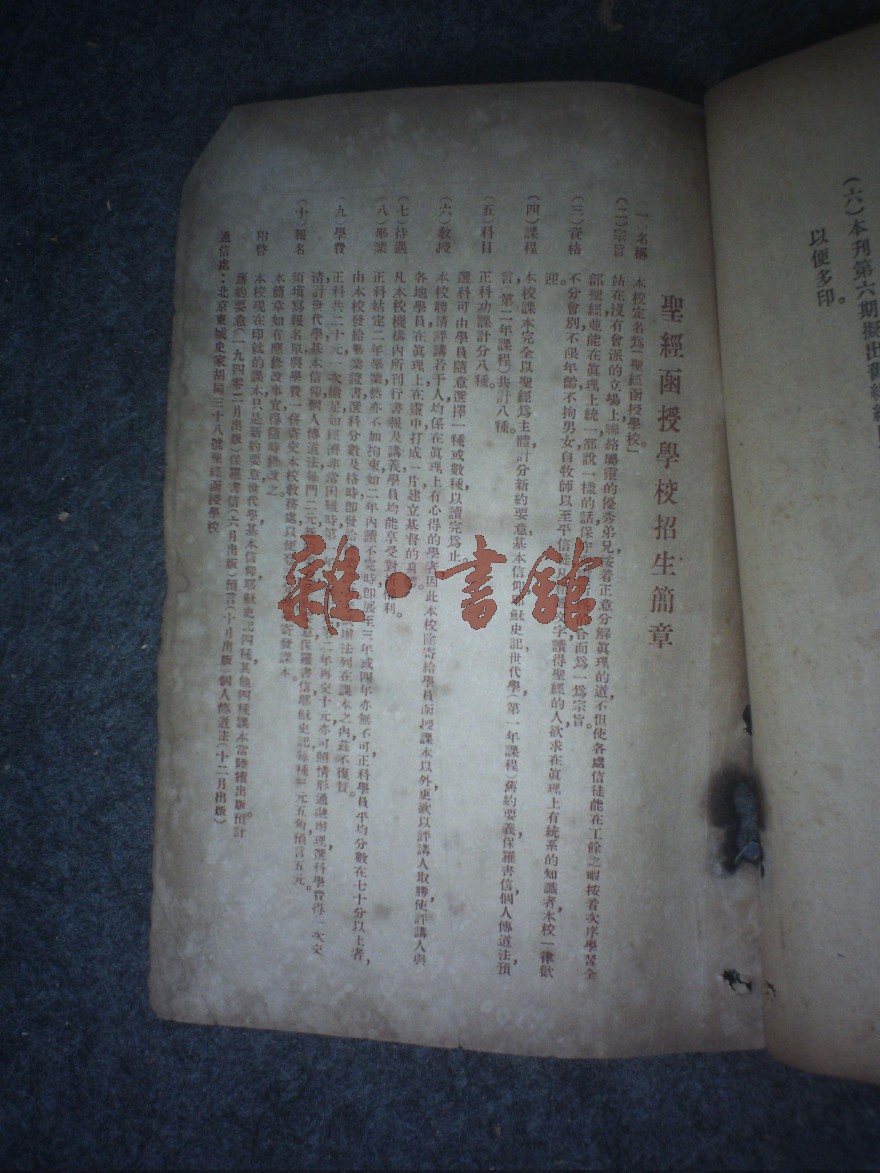 (六)本刊第六期擬出舊約
以便多印。
聖經函授學校招生簡章
(一)名稱 本校定名為「聖經函授學校」。
(二)宗旨 站在沒有會派的立場上聯絡屬靈的優秀弟兄按着正意分解眞理的道不但使各處信徒能在工餘之暇按着次序學習全
部聖經並能在眞理上統一都說一樣的話 合而為一為宗旨。
(三)資格 不分會別不限年齡不拘男女自牧師以至平信徒凡 文字讀得聖經的人欲求在眞理上有統系的知識者本校一律歡
迎。
(四)課程 本校課本完全以聖經為主體計分新約要意基本信仰耶穌史記世代學(第一年課程)舊約要義保羅書信個人傳道法預
言(第二年課程)共計八種。
(五)科目 正科功課計分八種。
選科可由學員隨意選擇一種或數種以讀完為止。
(六)教授 本校聘請評講若干人均係在眞理上有心得的學者因此本校除寄給學員函授課本以外更欲以評講人取勝使評講人與
各地學員在眞理上在靈中打成一片建立基督的身體。
(七)待遇 凡本校機構內所刊行書報及講義學員均能享受 權利。
(八)畢業 正科姑定二年畢業然亦不加拘束如二年內讀不完時卽展至三年或四年亦無不可正科學員平均分數在七十分以上者,
由本校發給畢業證書選科分數及格時卽發給 辦法列在課本之內茲不復贅。
(九)學費 正科共二十元一次繳足如經濟非常困難時第 二年再交十元亦可照情形通融辦理選科學費得一次交
清計世代學基本信仰個人傳道法每門二元 意保羅書信耶穌史記每種 元五角預言五元。
(十)報名 須填寫報名單與學費一併寄交本校敎務處以便 發課本。
本簡章如有應修改事宜得隨時修改之。
附啓 本校現在印就的課本只是新約要意世代學基本信仰耶穌史記四種其他四種課本當陸續出版預計
舊約要意(一九四零二月出版)保羅書信(六月出版)預言(十月出版)個人傳道法(十二月出版)
通信處:北京東城史家胡同三十八號聖經函授學校
雜·書館